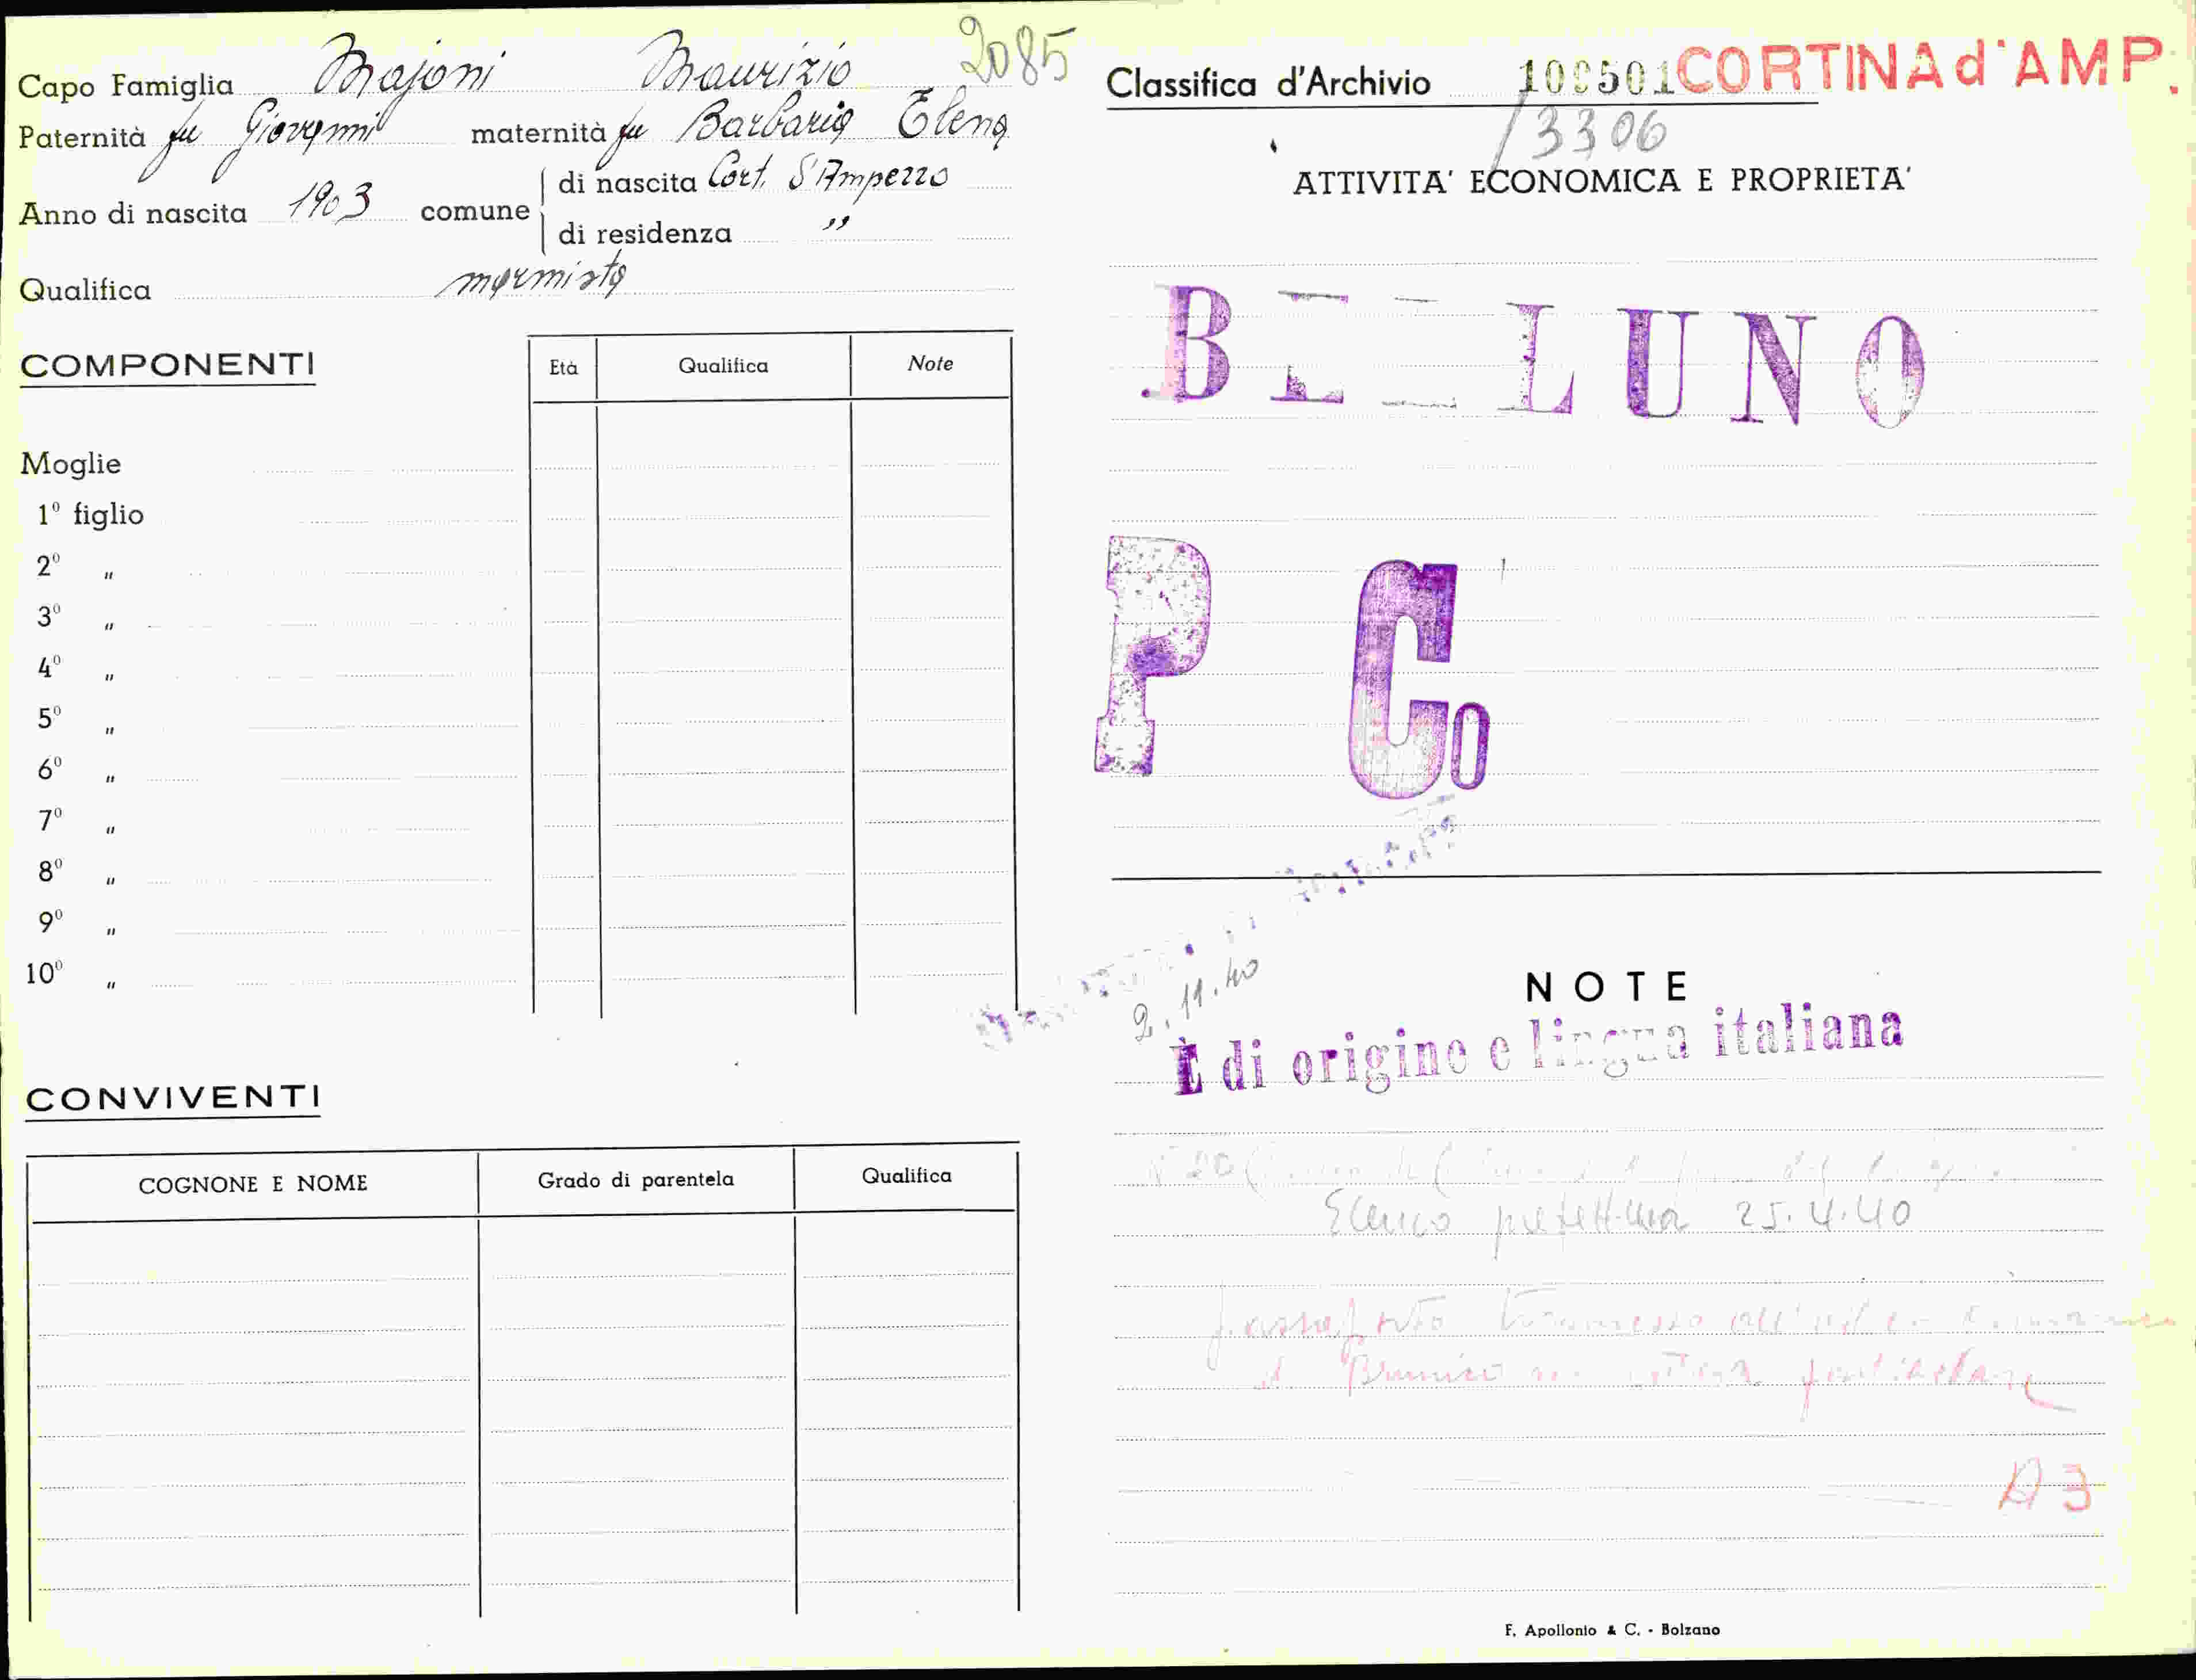 Capo Famiglia Majoni Maurizio 2085
Paternità fu Giovanni maternità fu Barbaria Elena
Anno di nascita 1903 comune di nascita Cort. d'Ampezzo
di residenza "
Qualifica marmista
COMPONENTI Età Qualifica Note
Moglie
1º figlio
2º "
3º "
4º "
5º "
6º "
7º "
8º "
9º "
10º "
CONVIVENTI
COGNONE E NOME Grado di parentela Qualifica
Classifica d'Archivio 100501 CORTINA d'AMP.
/3306
ATTIVITA' ECONOMICA E PROPRIETA'
BELLUNO
P Co
2.11.40
NOTE
È di origine e lingua italiana
Elenco prefettura 25.4.40
passaporto trasmesso
Brunico
A3
F. Apollonio & C. - Bolzano